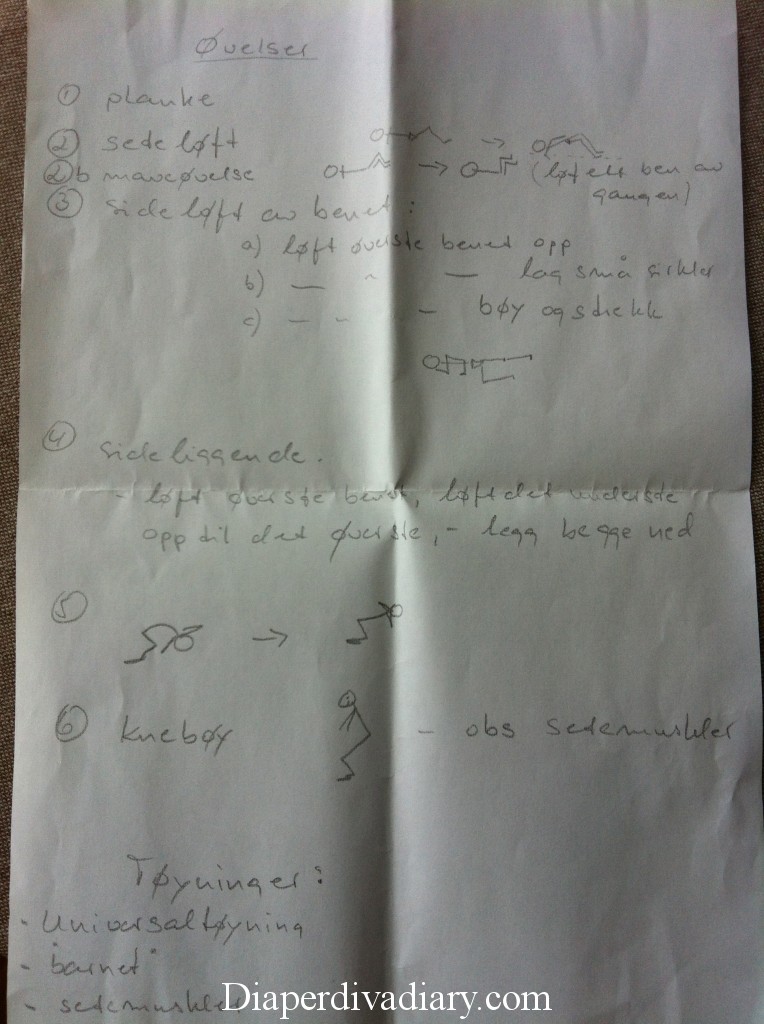 Øvelser
① planke
② seteløft
②b maveøvelse (løft ett ben av gangen)
③ Sideløft av benet:
a) løft øverste benet opp
b) — " — lag små sirkler
c) — " — bøy og strekk
④ sideliggende.
- løft øverste benet, løft det underste
opp til det øverste, - legg begge ned
⑤
⑥ knebøy - obs setemuskler
Tøyninger:
- Universaltøyning
- "barnet"
- setemuskler
Diaperdivadiary.com